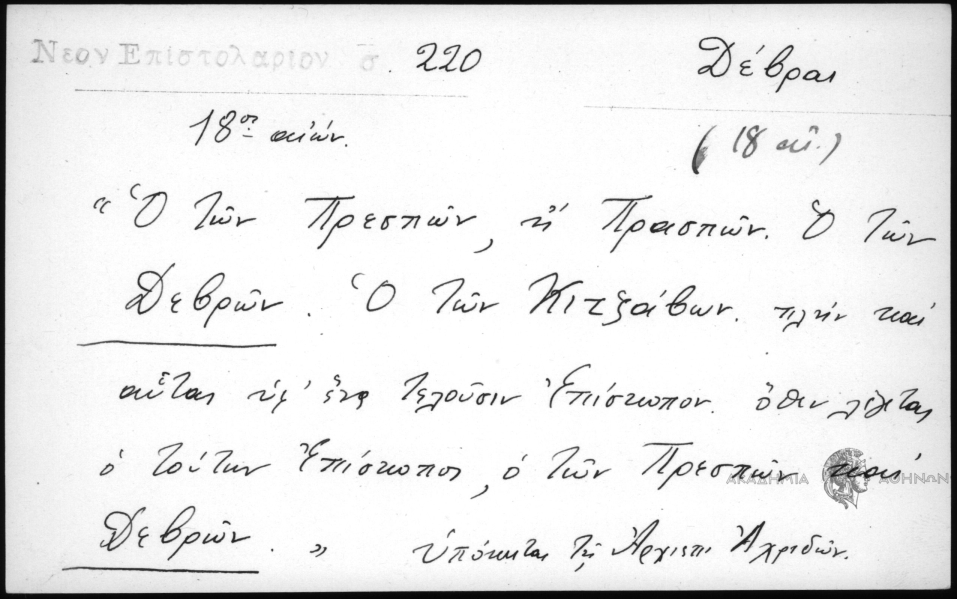 Νεον Επιστολαριον σ. 220 Δέβραι
18ος αιών. (18 αι.)
“Ὁ τῶν Πρεσπῶν, ἢ Πρασπῶν. Ὁ τῶν
Δεβρῶν. Ὁ τῶν Κιτζάβων. πλὴν καὶ
αὗται ὑφ' ἕνα τελοῦσιν Ἐπίσκοπον. ὅθεν λέγεται
ὁ τούτων Ἐπίσκοπος, ὁ τῶν Πρεσπῶν καὶ
Δεβρῶν. ” ὑπόκειται τῇ Ἀρχιεπι Ἀχριδῶν.
ΑΚΑΔΗΜΙΑ ΑΘΗΝΩΝ